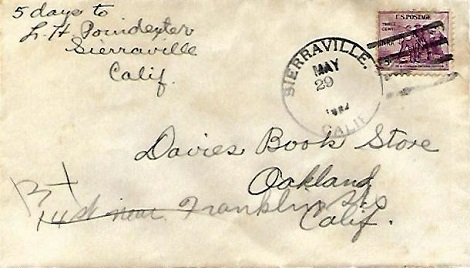 5 days to
L. H. Poindexter
Sierraville
Calif.
U.S. POSTAGE
THREE CENTS
SIERRAVILLE.
MAY
29
CALIF
Davies Book Store
Oakland
14 st near Franklin Sts
Calif.